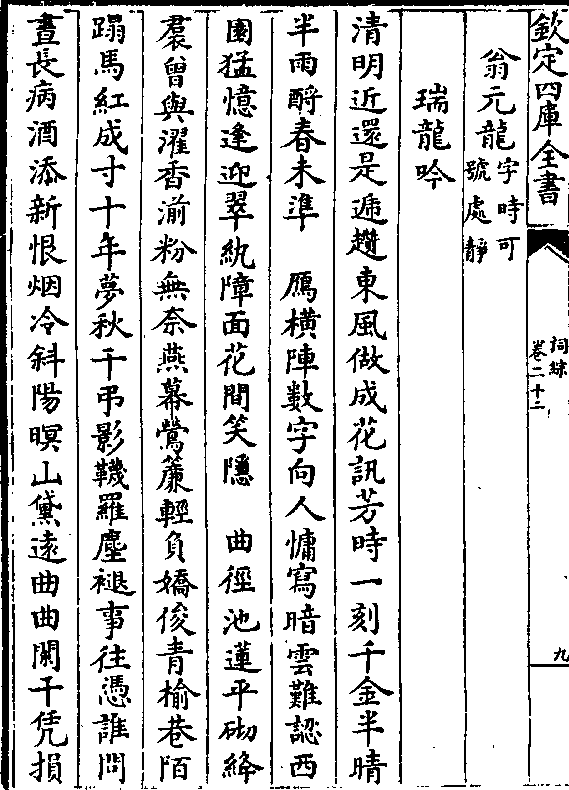 欽定四庫全書
詞綜
卷二十二
九
翁元龍字時可
號處靜
瑞龍吟
清明近還是遞趲東風做成花訊芳時一刻千金半晴
半雨酹春未準　鴈橫陣數字向人慵寫暗雲難認西
園猛憶逢迎翠紈障面花間笑隱　曲徑池蓮平砌絳
裠曾與濯香湔粉無奈燕幕鶯簾輕負嬌俊青榆巷陌
蹋馬紅成寸十年夢秋千弔影韈羅塵褪事往憑誰問
晝長病酒添新恨烟冷斜陽暝山黛遠曲曲闌干凭損